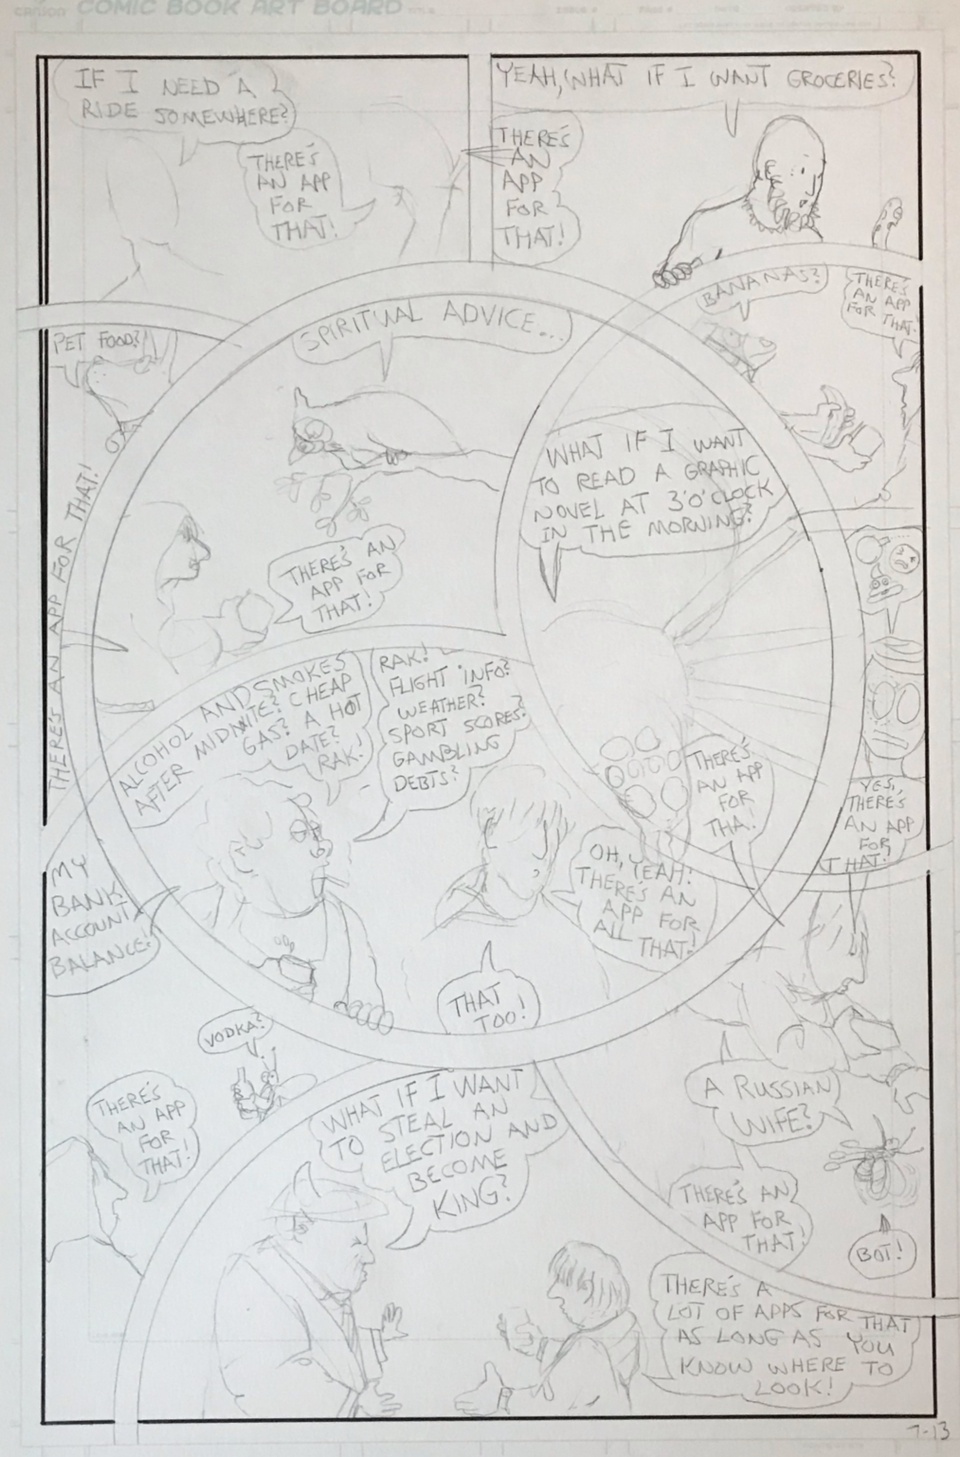 CANSON COMIC BOOK ART BOARD
IF I NEED A
RIDE SOMEWHERE?
THERE'S
AN APP
FOR
THAT!
YEAH, WHAT IF I WANT GROCERIES?
THERE'S
AN
APP
FOR
THAT!
BANANAS?
THERE'S
AN APP
FOR THAT.
PET FOOD?
THERE'S AN APP FOR THAT!
SPIRITUAL ADVICE...
THERE'S AN
APP FOR
THAT!
WHAT IF I WANT
TO READ A GRAPHIC
NOVEL AT 3'O'CLOCK
IN THE MORNING?
THERE'S
AN APP
FOR
THA!
YES,
THERE'S
AN APP
FOR
THAT!
ALCOHOL AND SMOKES
AFTER MIDNITE? CHEAP
GAS? A HOT
DATE?
RAK!
RAK!
FLIGHT INFO?
WEATHER?
SPORT SCORES?
GAMBLING
DEBTS?
OH, YEAH!
THERE'S AN
APP FOR
ALL THAT!
THAT
TOO!
MY
BANK
ACCOUNT
BALANCE?
VODKA?
THERE'S
AN APP
FOR
THAT!
A RUSSIAN
WIFE?
THERE'S AN
APP FOR
THAT!
BOT!
WHAT IF I WANT
TO STEAL AN
ELECTION AND
BECOME
KING?
THERE'S A
LOT OF APPS FOR THAT
AS LONG AS YOU
KNOW WHERE TO
LOOK!
7-13